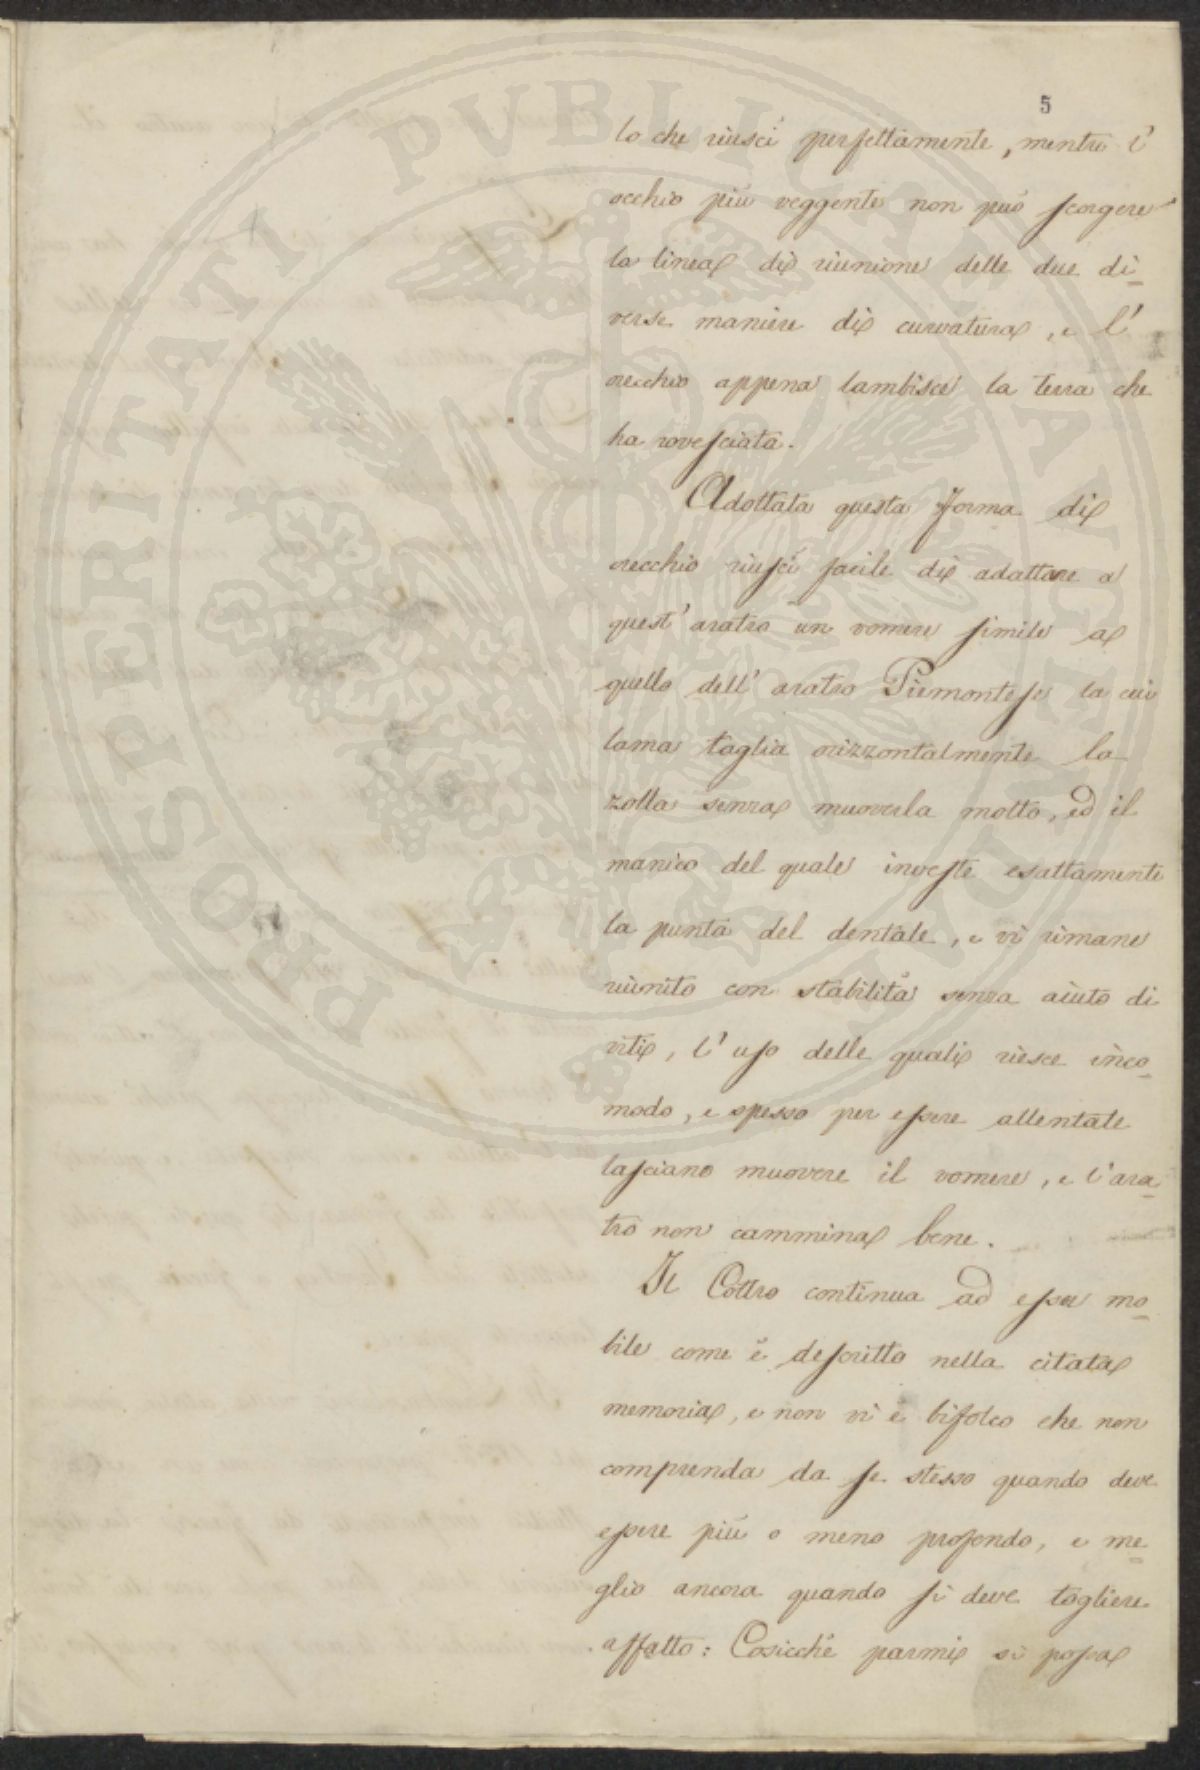 PROSPERITATI PVBLICAE AVGENDAE
5
lo che riuscì perfettamente, mentre l'
occhio più veggente non può scorgere
la linea di riunione delle due di-
verse maniere di curvatura, e l'
orecchio appena lambisce la terra che
ha rovesciata.
Adottata questa forma di
orecchio riuscì facile di adattare a
quest' aratro un vomere simile a
quello dell' aratro Piemontese la cui
lama taglia orizzontalmente la
zolla senza muoverla molto, ed il
manico del quale investe esattamente
la punta del dentale, e vi rimane
riunito con stabilità senza aiuto di
viti, l' uso delle quali riesce inco-
modo, e spesso per essere allentate
lasciano muovere il vomere, e l' ara-
tro non cammina bene.
Il Coltro continua ad esser mo-
bile come è descritto nella citata
memoria, e non vi è bifolco che non
comprenda da se stesso quando deve
essere più o meno profondo, e me-
glio ancora quando si deve togliere
affatto: Cosicchè parmi si possa